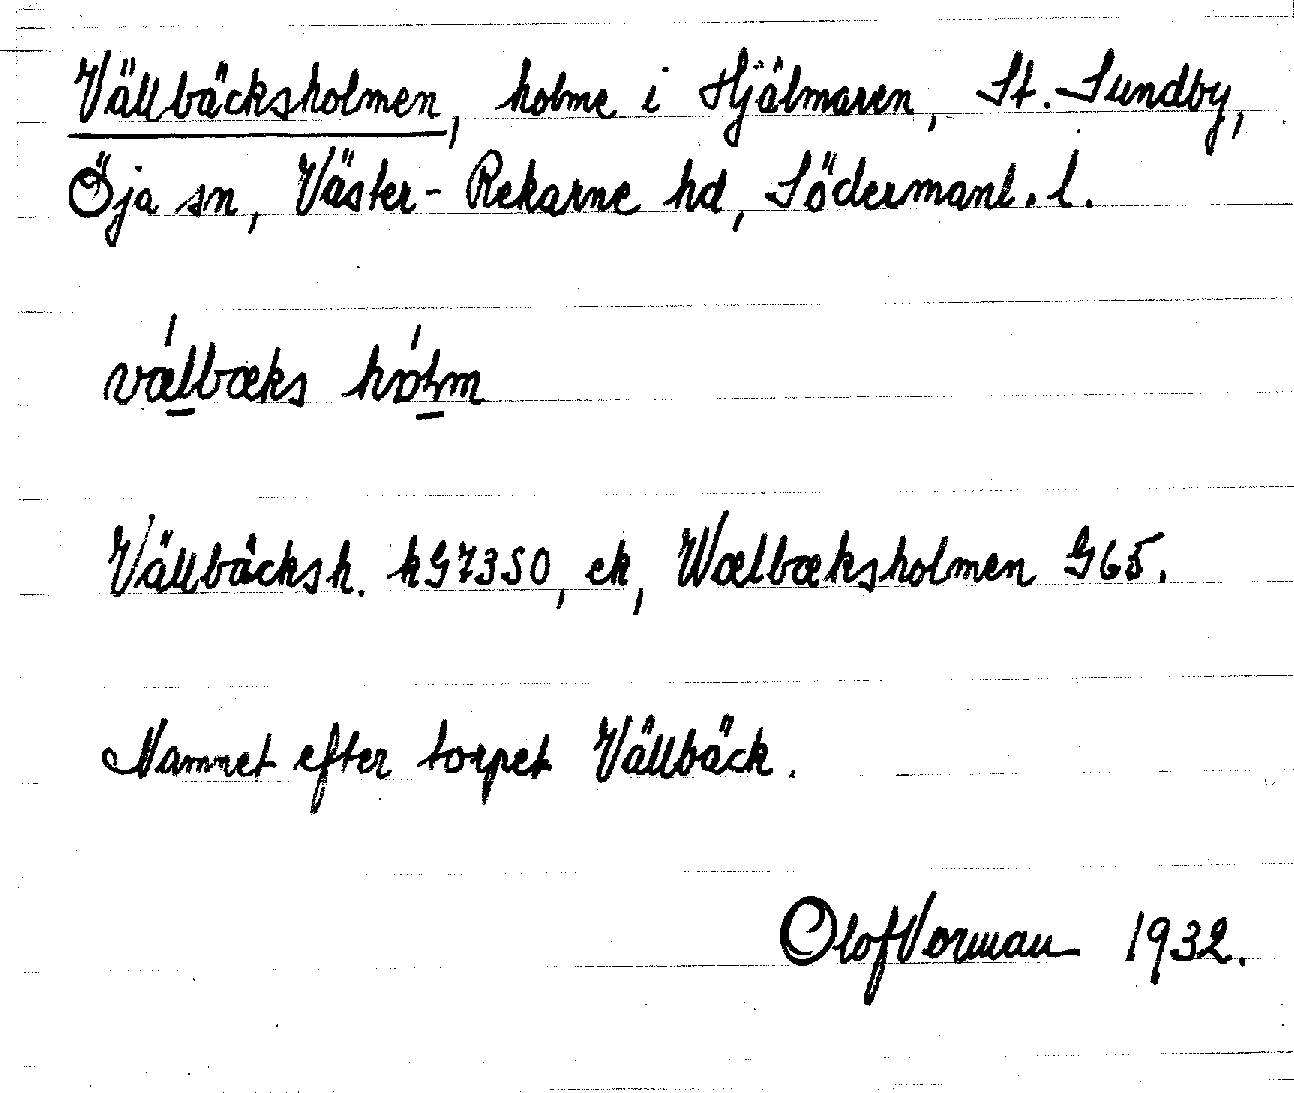 Vällbäcksholmen, holme i Hjälmaren, St. Sundby,
Öja sn, Väster-Rekarne hd, Södermanl. l.
vælbæks hólm
Vällbäcksh. kG7350, ek, Wælbæksholmen G65.
Namnet efter torpet Vällbäck.
Olof Vorman 1932.